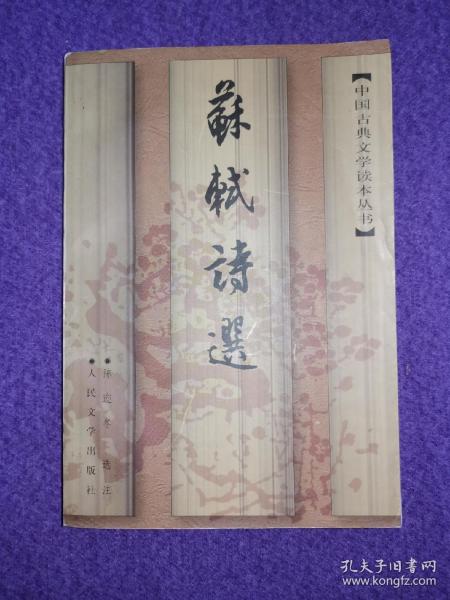 【中国古典文学读本丛书】
蘇軾詩選
●陈迩冬 选注
●人民文学出版社
孔夫子旧书网
www.kongfz.com